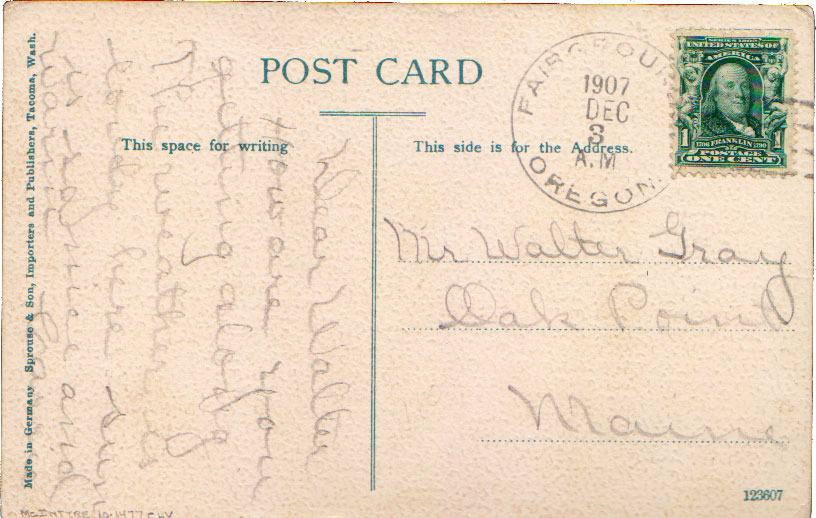 POST CARD
This space for writing
This side is for the Address.
FAIRGROU
OREGON.
1907
DEC
3
A.M
SERIES 1902
UNITED STATES OF
AMERICA
1
1706 FRANKLIN 1790
1
POSTAGE
ONE CENT
Mr Walter Gray
Oak Point
Maine
Dear Walter
How are you
getting along
The weather is
here
is so nice and
warm
Made in Germany Sprouse & Son, Importers and Publishers, Tacoma, Wash.
McINTYRE
123607